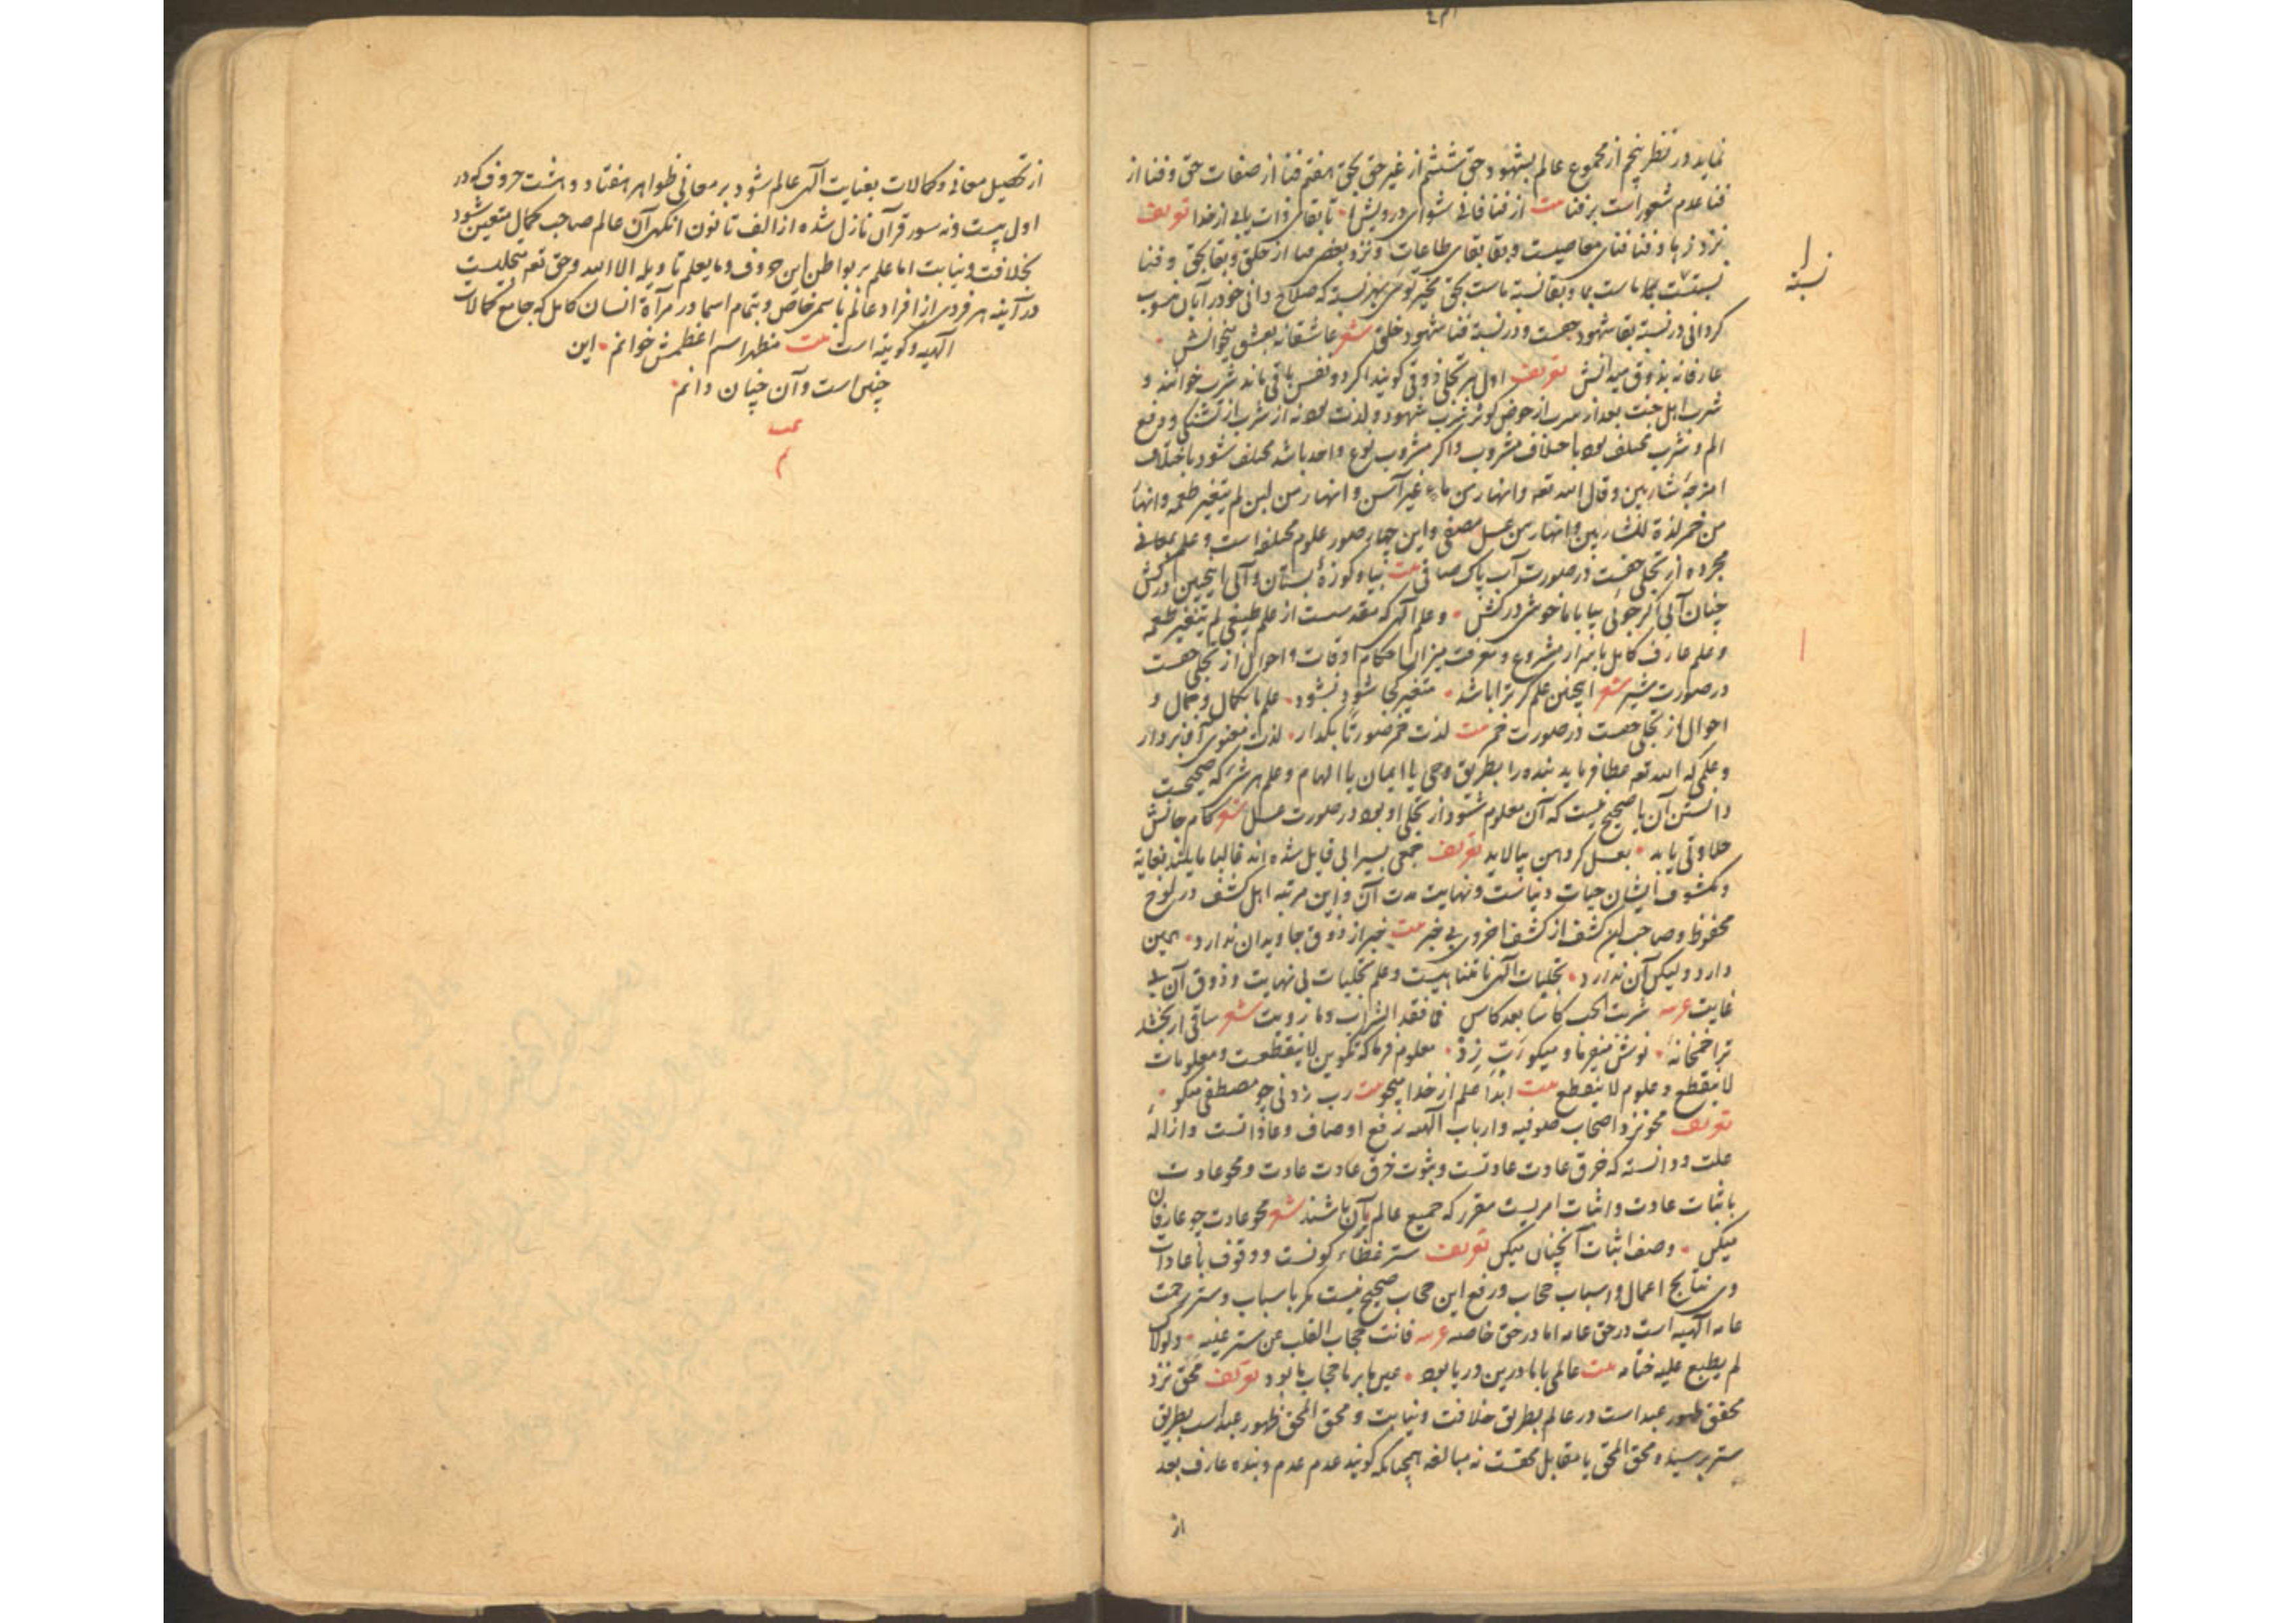 نماید در نظر پنجم از مجموع عالم بشهود حق ششم از غیر حق بحق هفتم فنا از صفات حق و فنا از
فنا عدم شعور است بر فنا بیت از فنا فانی شو ای درویش ما تا بقای ذات یابی از خدا تعریف
نزد زهاد فنا فنای معاصیست و بقا بقای طاعات و نزد بعضی فنا از خلق و بقا بحق و فنا
نسبتست بما و بقا نسبة ماست بحق
کردانی در نسبة بقا شهود حقست و در نسبة فنا شهود خلق شعر عاشقانه بعشق میخوانش
عارفانه بذوق میدانش تعریف اول هر تجلی ذوق کویند اکر دو نفس باقی ماند شرب خوانند و
شرب اهل جنت بعد از شرب از حوض کوثر شرب شهود و لذت بود نه از شرب از تشنکی و دفع
الم و شرب مختلف بود باختلاف مشروب و اکر مشروب نوع واحد باشد مختلف شود باختلاف
امزجهٔ شاربین و قال الله تعه و انهار من ماء غیر آسن و انهار من لبن لم یتغیر طعمه و انهار
من خمر لذة للشاربین و انهار من عسل مصفی و این چهار صور علوم مختلفه است و علم بمعانی
مجرده از تجلی حقست در صورت آب پاک صافی بیت بیا و کوزهٔ بستان و آبی اینچنین درکش
چنان آبی اکر جوئی بیا با ما خوشی درکش و علم الهی که مقدسست از علم طبیعی لم یتغیر طعمه
و علم عارف کامل باسرار مشروع و معرفت میزان احکام اوقات و احوال از تجلی حقست
در صورت شیر شعر اینچنین علم کر ترا باشد متغیر کجا شود نشود علم با کمال و جمال و
احوال از تجلی حقست در صورت خمر بیت لذت خمر صورتا بکذار لذت معنوی از آن بردار
و علمی که الله تعه عطا فرماید بنده را بطریق وحی یا ایمان یا الهام و علم هر شیء که صحیحست
دانستن آن یا صحیح نیست که آن معلوم شود از تجلی او بود در صورت عسل شعر کام جانش
حلاوتی یابد بعسل کر دهن بیالاید تعریف جمعی بسیرابی قایل شده اند غالبا مایلند بغایة
و مکشوف ایشان حیات دنیاست و نهایت مدت آن و این مرتبه اهل کشف در لوح
محفوظ و صاحب این کشف از کشف اخروی بی خبر بیت خبر از ذوق جاویدان ندارد همین
دارد ولیکن آن ندارد تجلیات الهی نامتناهیست و علم تجلیات بی نهایت و ذوق آن بی
غایت عربیه شربت الحب کاسا بعد کاس فما نفد الشراب و ما رویت شعر ساقی ار بخشد
ترا خمخانهٔ نوش میفرما و میکو رب زد معلوم فرما که تکوین لا ینقطعست و معلومات
لا ینقطع و علوم لا ینقطع بیت ابدا علم از خدا میجو رب زدنی چو مصطفی میکو
تعریف محو نزد اصحاب صوفیه و ارباب الهیه رفع اوصاف و عاداتست و ازالهٔ
علت و دانسته که خرق عادت عادتست و ثبوت خرق عادت عادت و محو عادت
باثبات عادت و اثبات امریست مقرر که جمیع عالم بآن باشند شعر محو عادت چو عارفان
میکن وصف اثبات آنچنان میکن تعریف ستر غطاء کونست و وقوف باعادات
و نتایج اعمال و اسباب حجاب و رفع این حجاب صحیح نیست مکر باسباب و ستر رحمت
عامه الهیه است در حق عامه اما در حق خاصه عربیه فانت حجاب القلب عن ستر غیبه و لولاک
لم یطبع علیه ختامه بیت عالمی با ما درین دریا بود عین ما بر ما حجاب ما بود تعریف محق نزد
محقق ظهور عبد است در عالم بطریق خلافت و نیابت و محق المحق ظهور عبد است بطریق
ستر بر سید و محق المحق یا مقابل محقست نه مبالغه همچنانکه کویند عدم عدم و بنده عارف بعد
از
نسبة
از تحصیل معانی و کمالات بعنایت الهی عالم شود بر معانی ظواهر هفتاد و هشت حروف که در
اول بیست و نه سور قرآن نازل شده از الف تا نون آنکهی آن عالم صاحب کمال متعین شود
بخلافت و نیابت اما علم بر بواطن این حروف و ما یعلم تأویله الا الله و حق تعه متجلیست
در آینه هر فردی از افراد عالم باسمی خاص و بتمام اسما در مرآة انسان کامل که جامع کمالات
الهیه و کونیه است بیت مظهر اسم اعظمش خوانم این
چنین است و آن چنان دانم
تمت
م